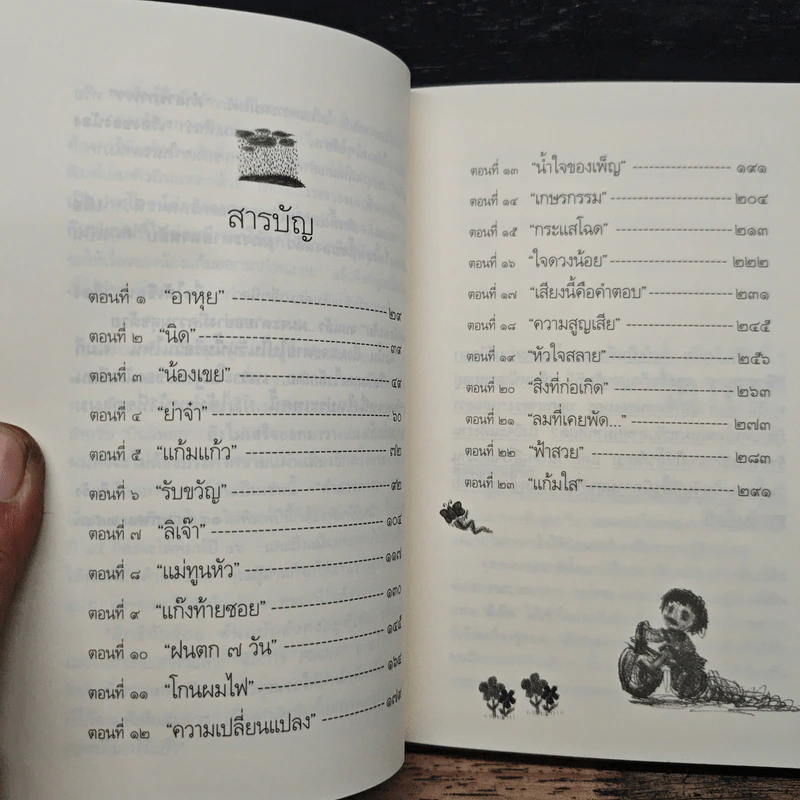 สารบัญ
ตอนที่ ๑ “อาหุย” ๒๙
ตอนที่ ๒ “นิด” ๓๔
ตอนที่ ๓ “น้องเขย” ๔๙
ตอนที่ ๔ “ย่าจ๋า” ๖๐
ตอนที่ ๕ “แก้มแก้ว” ๗๒
ตอนที่ ๖ “รับขวัญ” ๙๒
ตอนที่ ๗ “ลิเจ๊า” ๑๐๔
ตอนที่ ๘ “แม่ทูนหัว” ๑๑๗
ตอนที่ ๙ “แก๊งท้ายซอย” ๑๓๐
ตอนที่ ๑๐ “ฝนตก ๗ วัน” ๑๔๕
ตอนที่ ๑๑ “โกนผมไฟ” ๑๖๔
ตอนที่ ๑๒ “ความเปลี่ยนแปลง” ๑๗๙
ตอนที่ ๑๓ “น้ำใจของเพ็ญ” ๑๙๑
ตอนที่ ๑๔ “เกษรกรรม” ๒๐๔
ตอนที่ ๑๕ “กระแสโฉด” ๒๑๓
ตอนที่ ๑๖ “ใจดวงน้อย” ๒๒๒
ตอนที่ ๑๗ “เสียงนี้คือคำตอบ” ๒๓๑
ตอนที่ ๑๘ “ความสูญเสีย” ๒๔๕
ตอนที่ ๑๙ “หัวใจสลาย” ๒๕๖
ตอนที่ ๒๐ “สิ่งที่ก่อเกิด” ๒๖๓
ตอนที่ ๒๑ “ลมที่เคยพัด...” ๒๗๓
ตอนที่ ๒๒ “ฟ้าสวย” ๒๘๓
ตอนที่ ๒๓ “แก้มใส” ๒๙๑